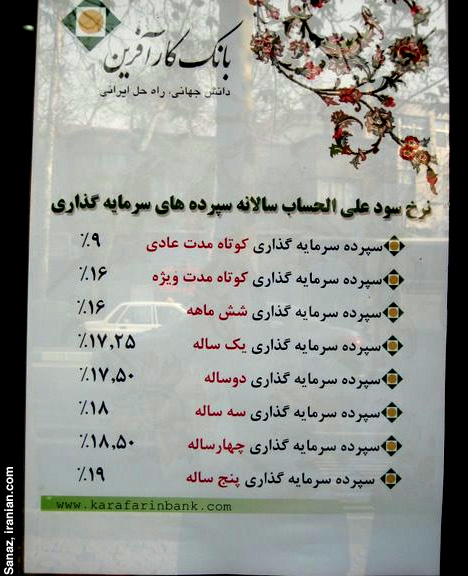 بانک کارآفرین
دانش جهانی، راه حل ایرانی
نرخ سود علی الحساب سالانه سپرده های سرمایه گذاری
سپرده سرمایه گذاری کوتاه مدت عادی ٪۹
سپرده سرمایه گذاری کوتاه مدت ویژه ٪۱۶
سپرده سرمایه گذاری شش ماهه ٪۱۶
سپرده سرمایه گذاری یک ساله ٪۱۷,۲۵
سپرده سرمایه گذاری دوساله ٪۱۷,۵۰
سپرده سرمایه گذاری سه ساله ٪۱۸
سپرده سرمایه گذاری چهارساله ٪۱۸,۵۰
سپرده سرمایه گذاری پنج ساله ٪۱۹
www.karafarinbank.com
Sanaz, iranian.com